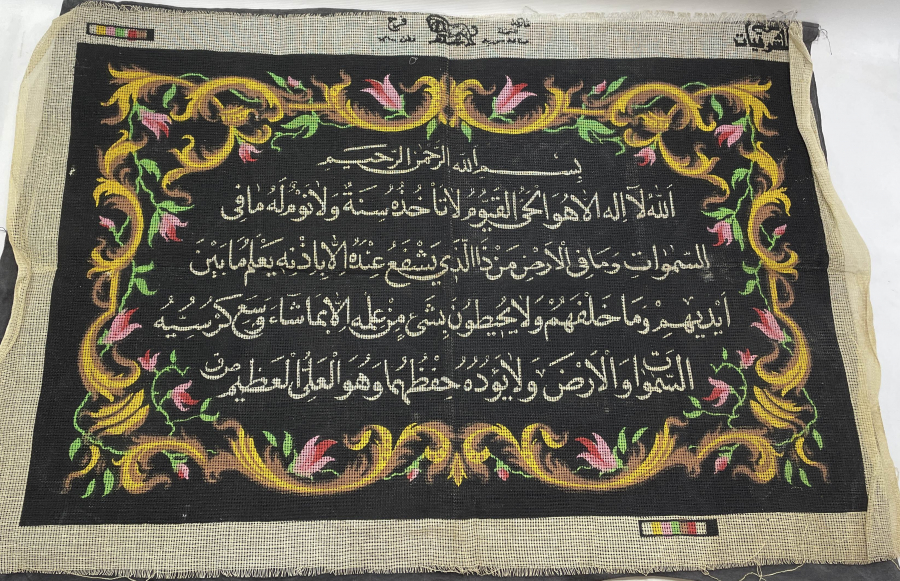 بِسْمِ اللهِ الرَّحْمٰنِ الرَّحِيمِ
اَللهُ لَآ اِلٰهَ اِلَّا هُوَ الْحَيُّ الْقَيُّومُ لَا تَأْخُذُهُ سِنَةٌ وَلَا نَوْمٌ لَهُ مَا فِى
السَّمٰوَاتِ وَمَا فِى الْاَرْضِ مَنْ ذَا الَّذِي يَشْفَعُ عِنْدَهُ اِلَّا بِاِذْنِهِ يَعْلَمُ مَا بَيْنَ
اَيْدِيهِمْ وَمَا خَلْفَهُمْ وَلَا يُحِيطُونَ بِشَئٍ مِنْ عِلْمِهِ اِلَّا بِمَا شَاءَ وَسِعَ كُرْسِيُّهُ
السَّمٰوَاتِ وَالْاَرْضَ وَلَا يَؤُدُهُ حِفْظُهُمَا وَهُوَ الْعَلِيُّ الْعَظِيمُ